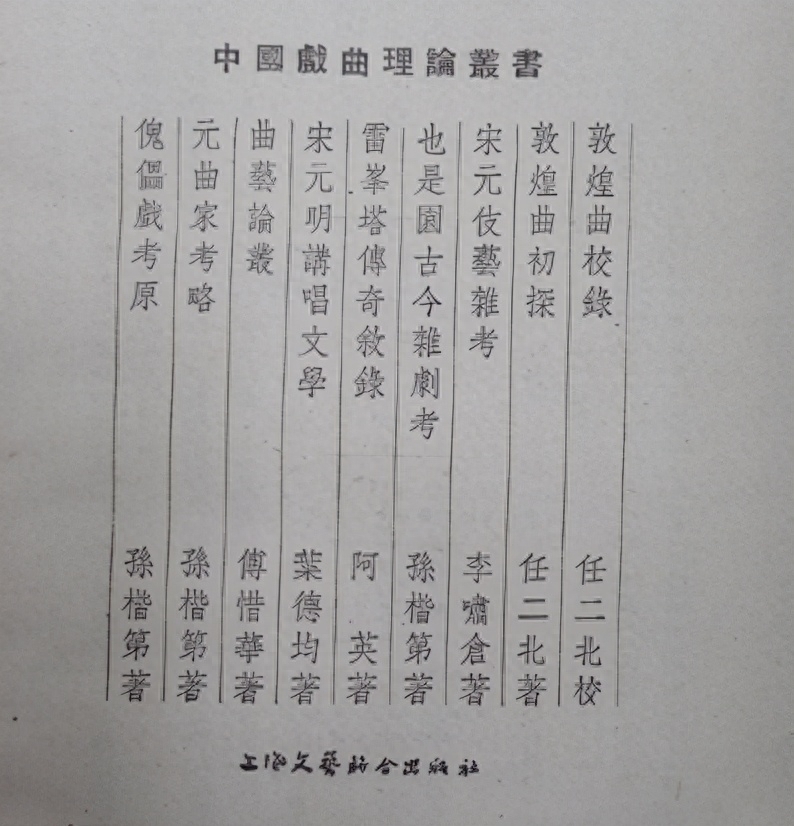 中國戲曲理論叢書
敦煌曲校錄 任二北校
敦煌曲初探 任二北著
宋元伎藝雜考 李嘯倉著
也是園古今雜劇考 孫楷第著
雷峯塔傳奇敘錄 阿英著
宋元明講唱文學 葉德均著
曲藝論叢 傅惜華著
元曲家考略 孫楷第著
傀儡戲考原 孫楷第著
上海文藝聯合出版社